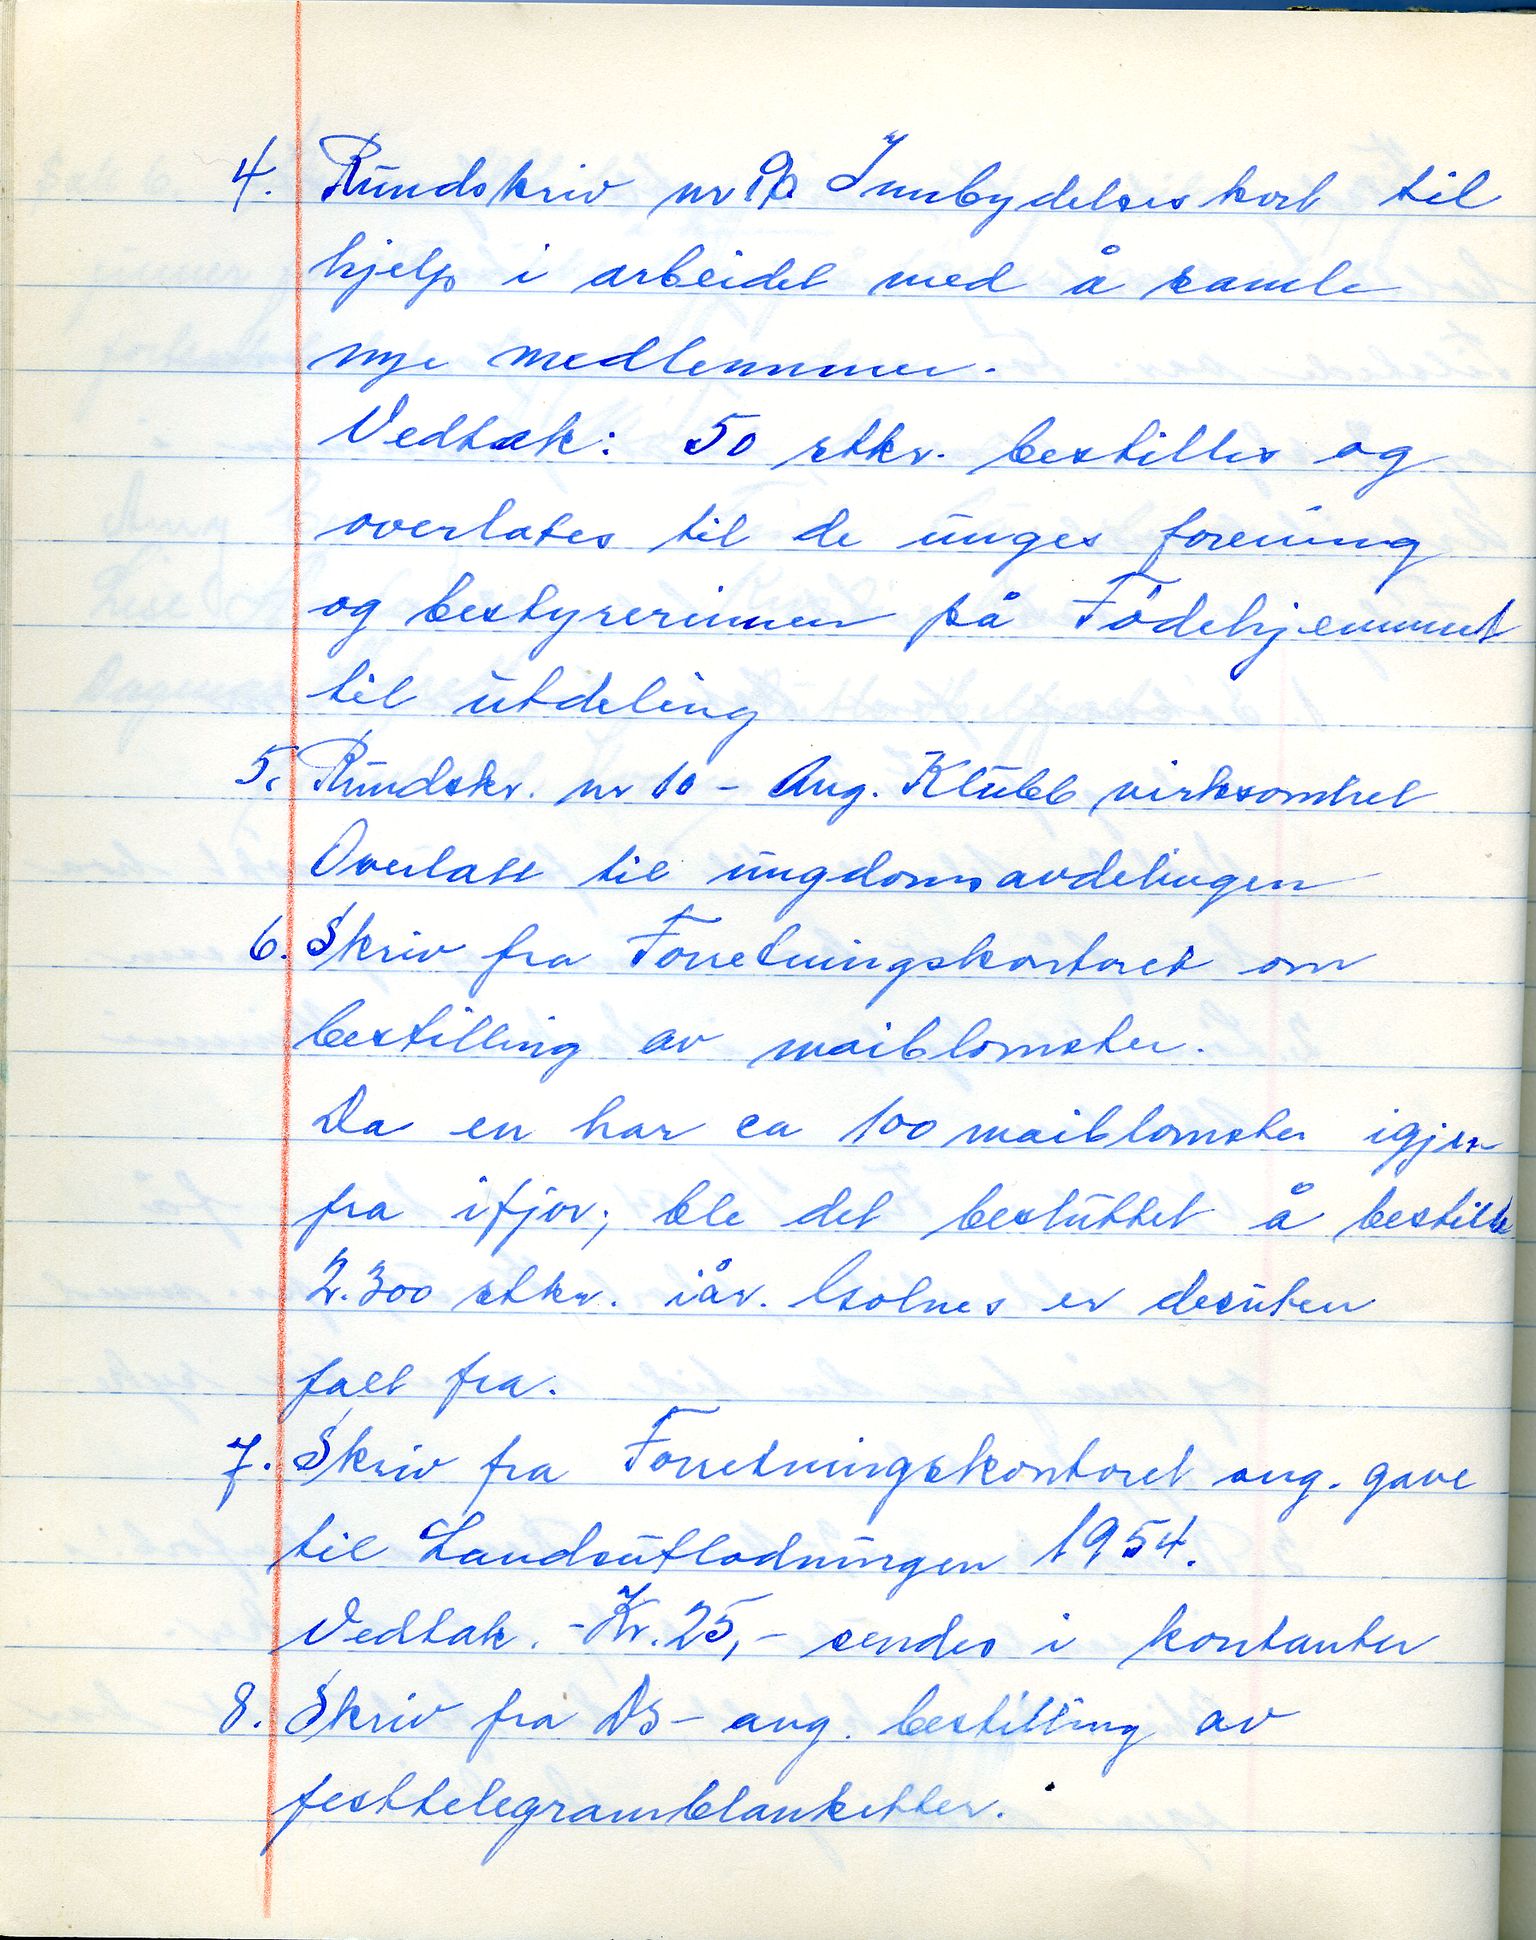 4. Rundskriv nr Innbydelseskort til
hjelp i arbeidet med å samle
nye medlemmer.
Vedtak: 50 stkr. bestilles og
overlates til de unges forening
og bestyrerinnen på Fødehjemmet
til utdeling
5. Rundskr. nr 10 - Ang. Klubb virksomhet
Overlatt til ungdomsavdelingen
6. Skriv fra Forretningskontoret om
bestilling av maiblomster.
Da en har ca 100 maiblomster igjen
fra ifjor; ble det besluttet å bestille
2.300 stkr. iår. Isolnes er desuten
falt fra.
7. Skriv fra Forretningskontoret ang. gave
til Landsutlodningen 1954.
Vedtak. - Kr. 25,- sendes i kontanter
8. Skriv fra DS - ang. bestilling av
festtelegramblanketter.